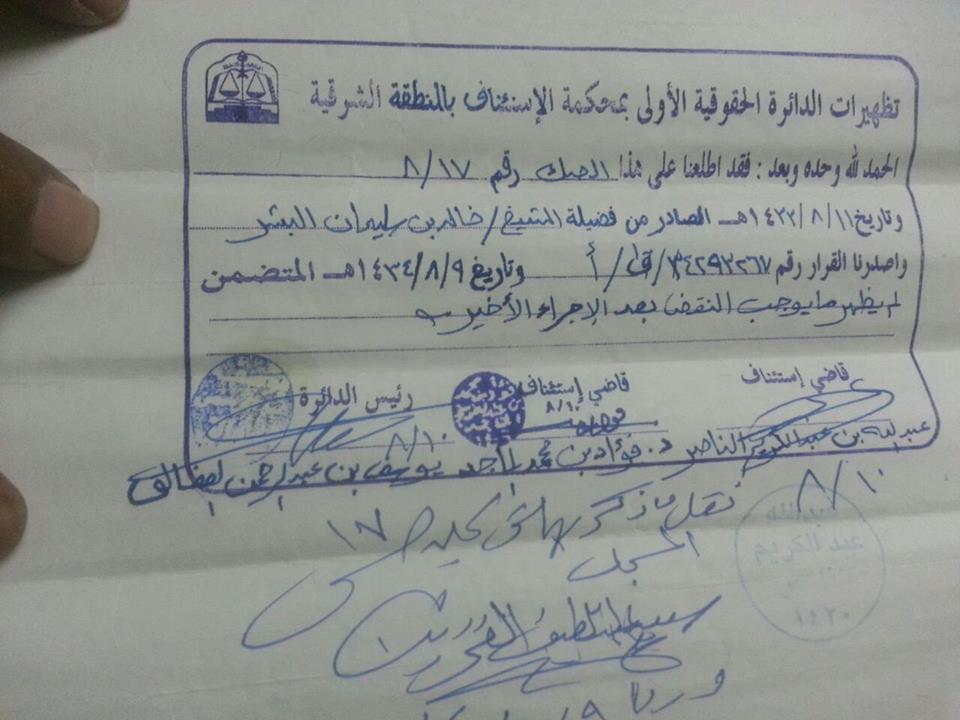 تظهيرات الدائرة الحقوقية الأولى بمحكمة الإستئناف بالمنطقة الشرقية
الحمد لله وحده وبعد : فقد اطلعنا على هذا الصك رقم ٨/١٧
وتاريخ ١٤٣٢/٨/١١هـ الصادر من فضيلة الشيخ / خالد بن سليمان البشر
واصدرنا القرار رقم ٣٤٢٩٣٢٦٧/ق/أ وتاريخ ١٤٣٤/٨/٩هـ المتضمن
لم يظهر ما يوجب النقض بعد الإجراء الأخير
قاضي إستئناف
قاضي إستئناف
رئيس الدائرة
٨/١٠
٨/١٠
عبد الله بن عبد الكريم الناصر د. فؤاد بن محمد الماجد يوسف بن عبد الرحمن العفالق
٨/١٠
نقل ما ذكر بهامش
١٧
المسجل
عبد الله
عبد الكريم
١٤٢٠